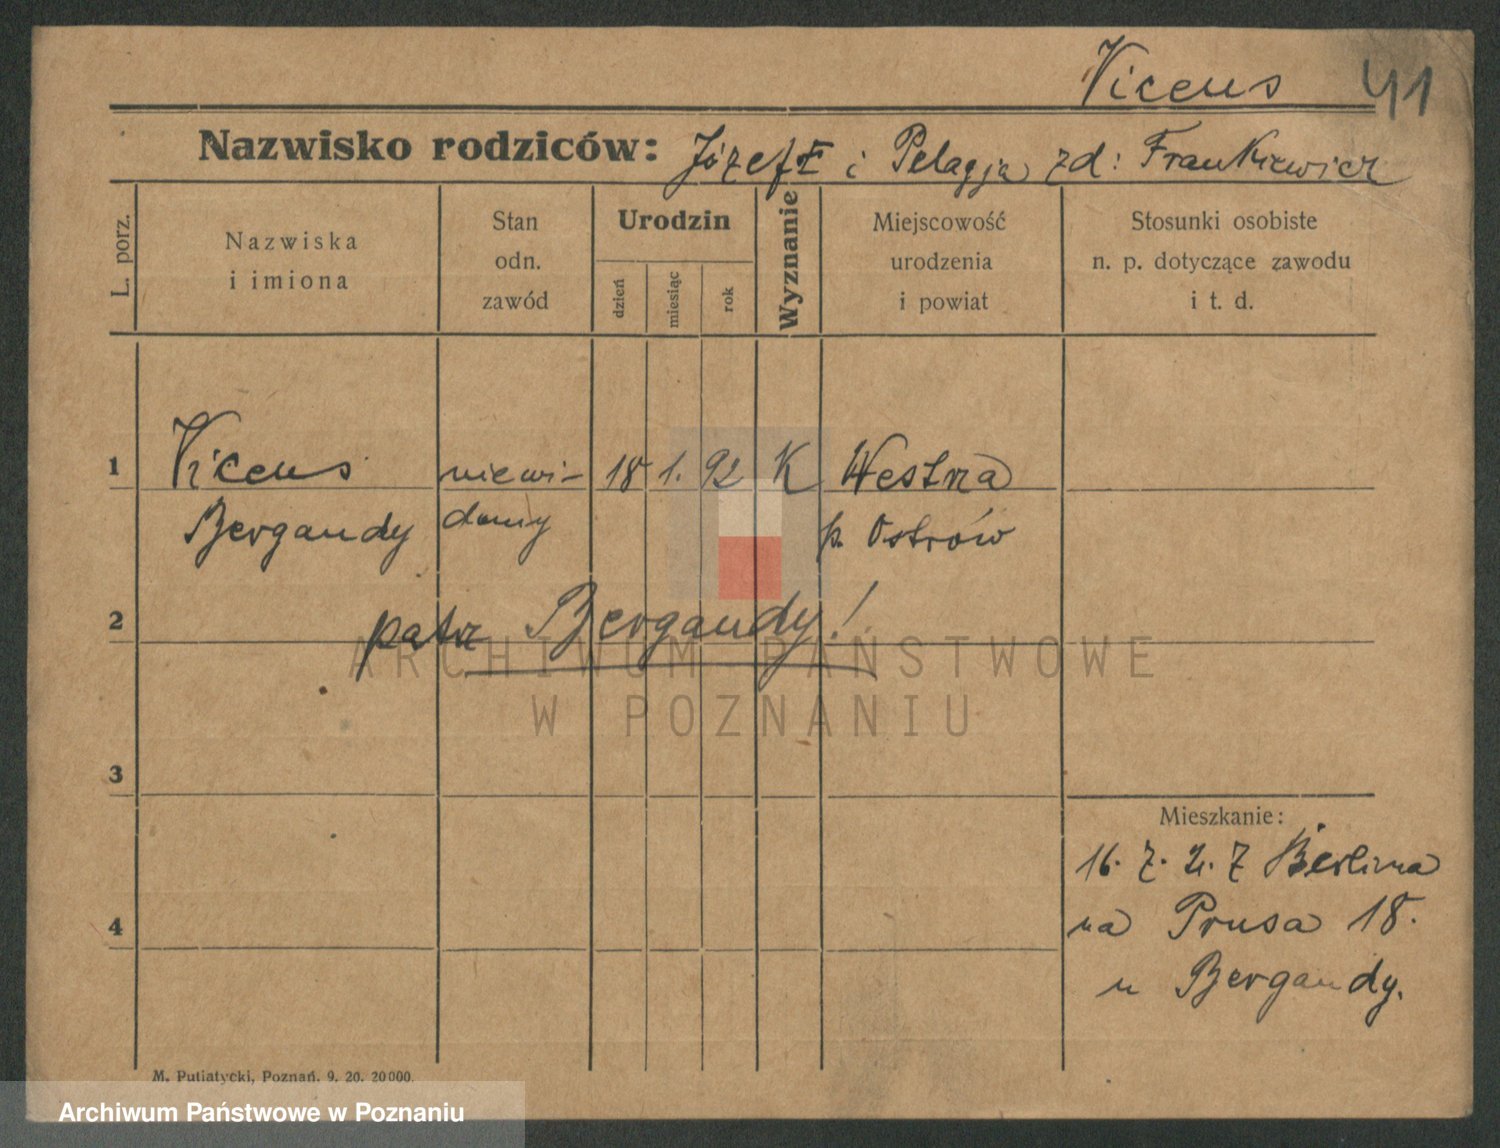 Vicens 41
Nazwisko rodziców: Józef i Pelagja zd: Frankiewicz
L. porz.
Nazwiska
i imiona
Stan
odn.
zawód
Urodzin
dzień
miesiąc
rok
Wyznanie
Miejscowość
urodzenia
i powiat
Stosunki osobiste
n. p. dotyczące zawodu
i t. d.
1 Vicens niewi- 18 1. 92 K Westrza
Bergandy domy p. Ostrów
2 patrz Bergandy!
ARCHIWUM PAŃSTWOWE
W POZNANIU
3
Mieszkanie:
16. 7. 27 Berlina
4 na Prusa 18.
u Bergandy.
M. Putiatycki, Poznań. 9. 20. 20000.
Archiwum Państwowe w Poznaniu